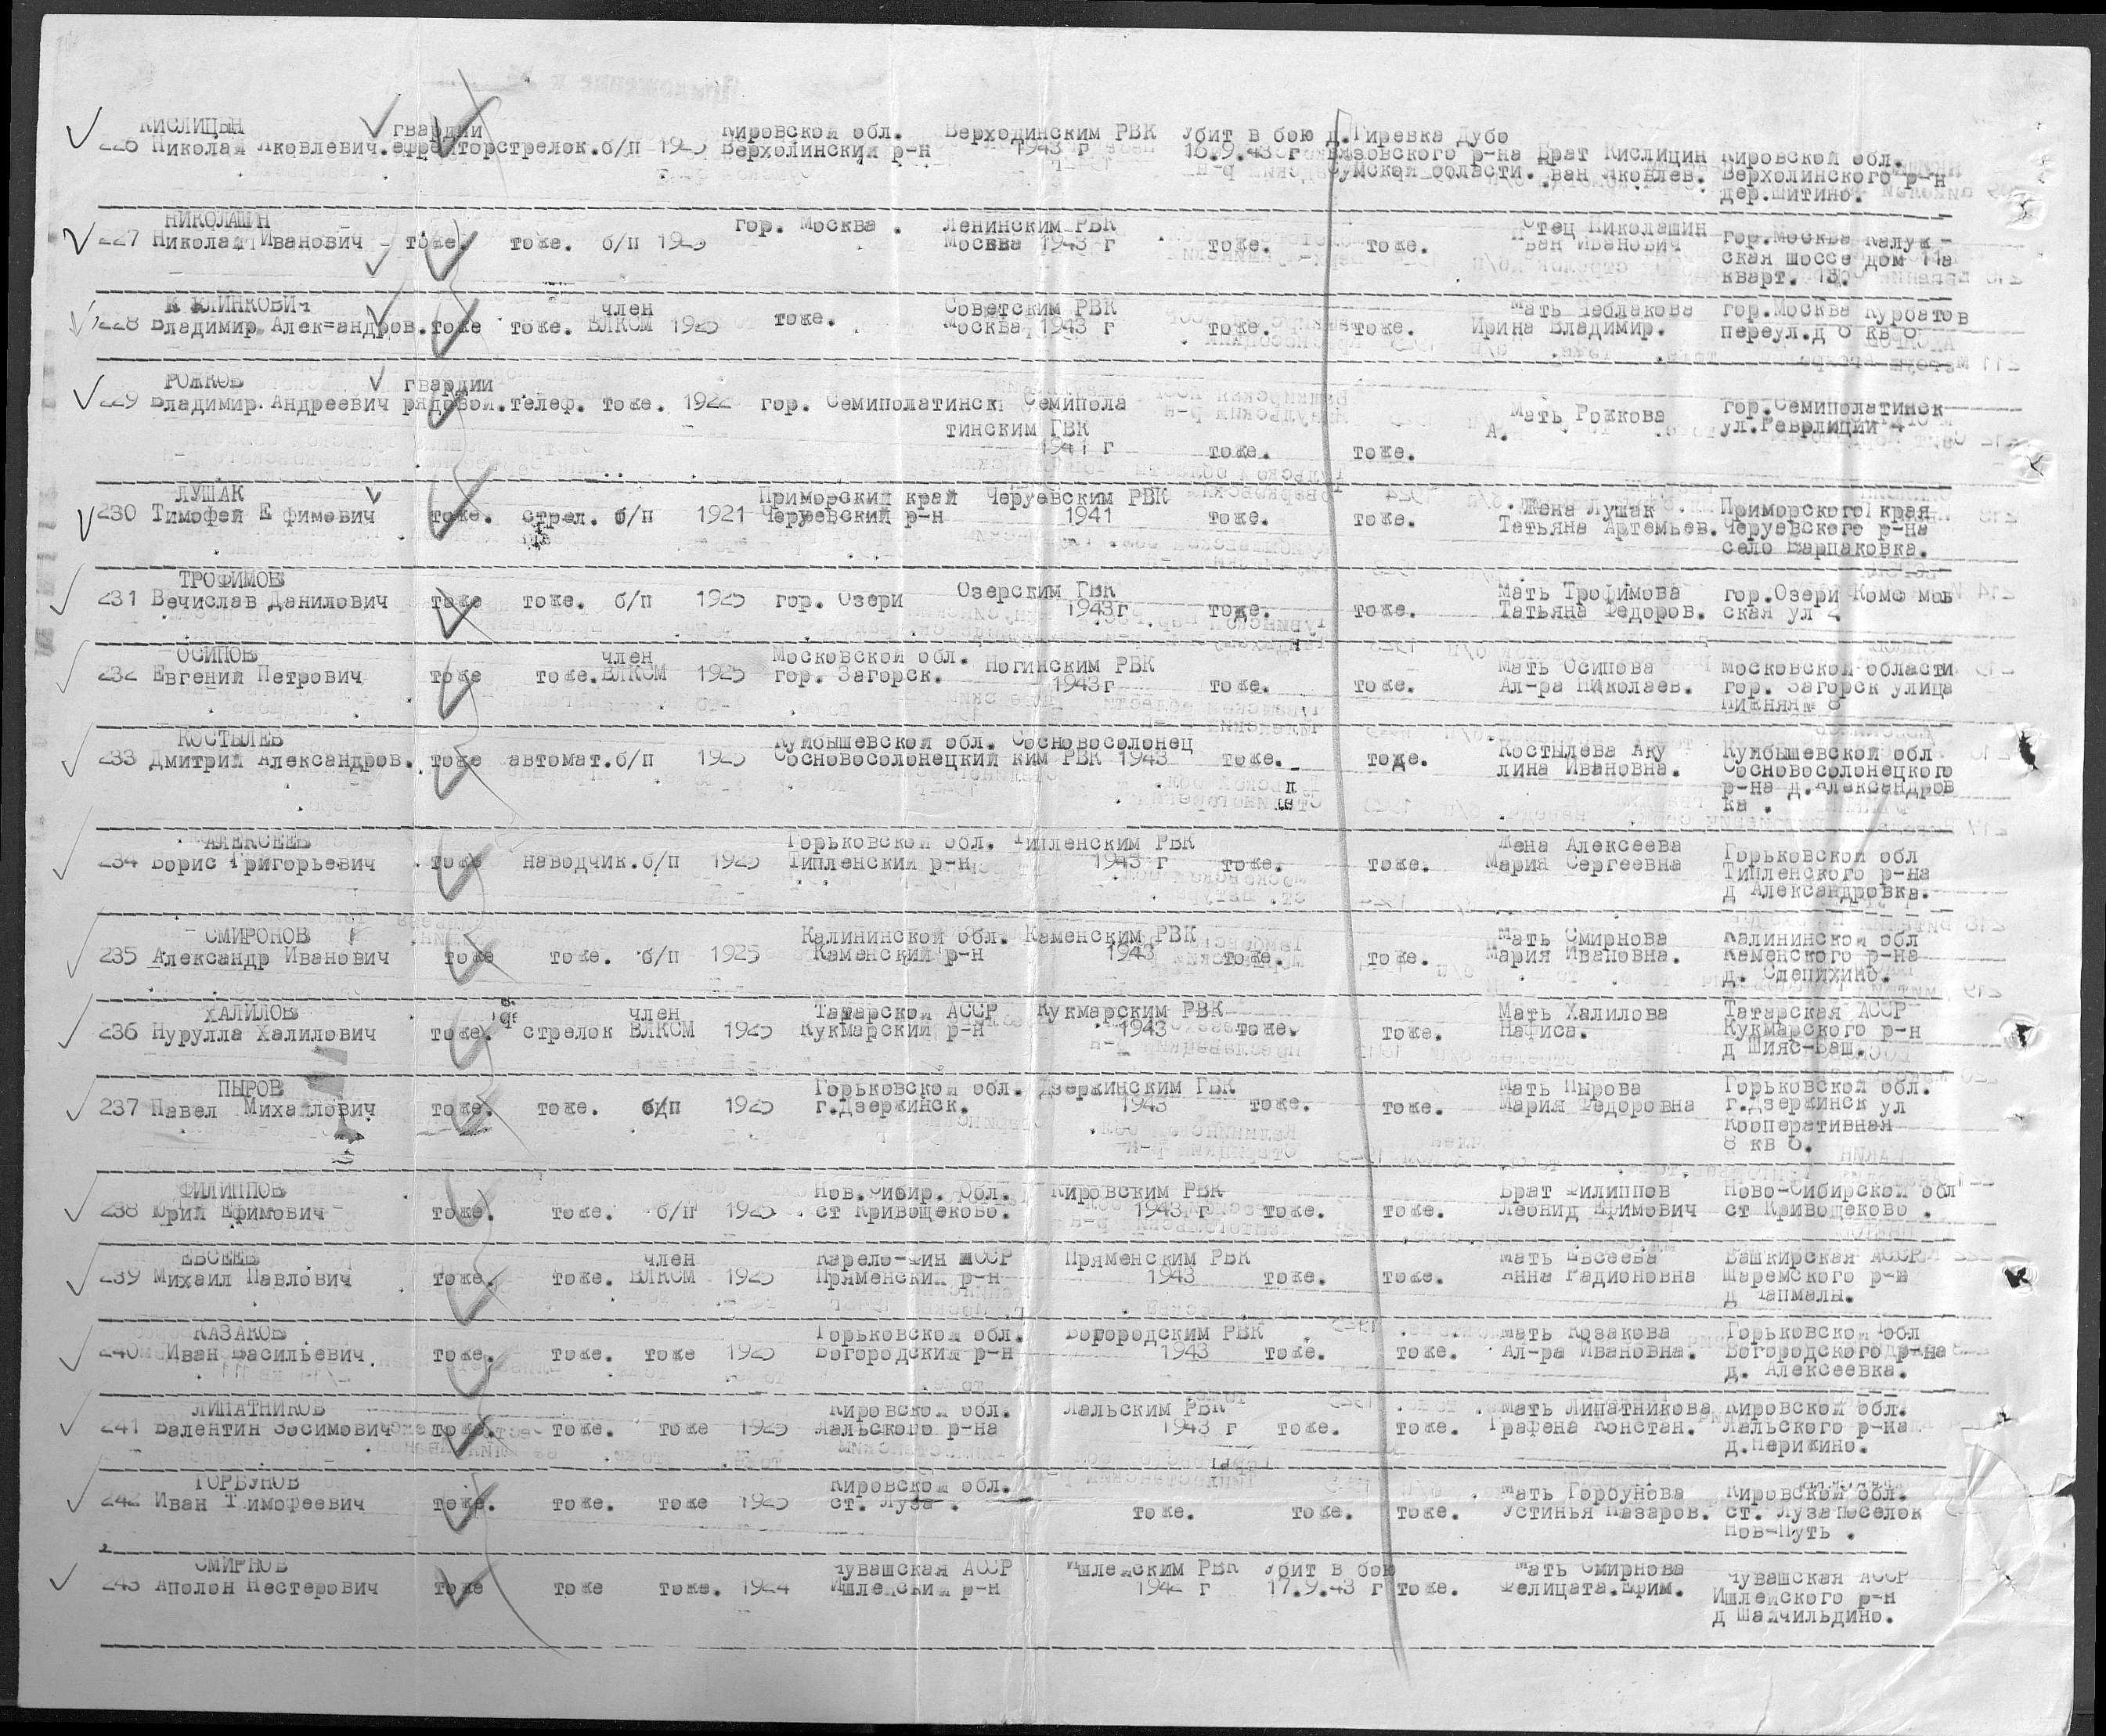 КИСЛИЦЫН гвардии Кировской обл. Верходинским РВК Убит в бою д.Гиревка Дубо
226 Николай Яковлевич.ефрейтор стрелок.б/п 1925 Верхолинский р-н 1943 г 16.9.43 г вязовского р-на Брат Кислицин Кировской обл.
Сумской области. Иван Яковлев. Верхолинского р-н
дер.Шитино.
НИКОЛАШИН гор. Москва . Ленинским РВК Отец Николашин гор.Москва Калуж-
227 Николай Иванович - тоже. тоже. б/п 1925 Москва 1943 г тоже. тоже. Иван Иванович
ская шоссе дом 11а
кварт. 13.
КАЛИНКОВИЧ член Советским РВК Мать Чеблакова гор.Москва Курбатов
228 Владимир Алек=андров.тоже тоже. ВЛКСМ 1925 тоже. Москва 1943 г тоже. тоже. Ирина Владимир. переул.д 6 кв 6
РОЖКОВ гвардии
229 Владимир.Андреевич рядовой.телеф. тоже. 1922 гор. Семиполатинск Семипола Мать Рожкова гор.Семиполатинск
тинским ГВК А. ул.Реврлиции 4
1941 г тоже. тоже.
ЛУШАК Приморский край Черуевским РВК Жена Лушак Приморского края
230 Тимофей Е фимович тоже. стрел. б/п 1921 Черуевский р-н 1941 тоже. тоже. Татьяна Артемьев. Черуевского р-на
село Варпаковка.
ТРОФИМОВ Озерским ГВК Мать Трофимова гор.Озери Комс мов
231 Вечислав Данилович тоже тоже. б/п 1925 гор. Озери 1943г тоже. тоже. Татьяна Федоров. ская ул 4
ОСИПОВ член Московской обл. Ногинским РВК Мать Осипова московской области
232 Евгений Петрович тоже тоже.ВЛКСМ 1925 гор. Загорск. 1943г тоже. тоже. Ал-ра Николаев. гор. Загорск улица
Нижняя № 8
КОСТЫЛЕВ Куйбышевской обл. Сосновосолонец Костылева Аку Куйбышевской обл
233 Дмитрий Александров. тоже автомат.б/п 1925 Сосновосолонецкий ким РВК 1943 тоже. тоде. лина Ивановна. Сосновосолонецкого
р-на д.Александров
ка .
АЛЕКСЕЕВ Горьковской обл. Типленским РВК Жена Алексеева Горьковской обл
234 Борис Григорьевич тоже наводчик.б/п 1925 Типленский р-н 1943 г тоже. тоже. Мария Сергеевна Типленского р-на
д Александровка.
СМИРОНОВ Калининской обл. Каменским РВК Мать Смирнова Калининской обл
235 Александр Иванович тоже тоже. б/п 1925 Каменский р-н 1943 тоже. тоже. Мария Ивановна. Каменского р-на
д. Слепихино.
ХАЛИЛОВ член Татарской АССР Кукмарским РВК Мать Халилова Татарская АССР
236 Нурулла Халилович тоже. стрелок ВЛКСМ 1925 Кукмарский р-н 1943 тоже. тоже. Нафиса. Кукмарского р-н
д Шияс-Баш.
ПЫРОВ Горьковской обл. Дзержинским ГВК Мать Пырова Горьковской обл.
237 Павел Михайлович тоже. тоже. б/п 1925 г.Дзержинск. 1943 тоже. тоже. Мария Федоровна г.Дзержинск ул
Кооперативная
8 кв 6.
ФИЛИППОВ Нов.Сибир. Обл. Кировским РВК Брат Филиппов Ново-Сибирской обл
238 Юрий Ефимович тоже. тоже. б/п 1925 ст Кривощеково. 1943 г тоже. тоже. Леонид Ефимович ст Кривощеково .
ЕВСЕЕВ член Карело-Фин АССР Пряменским РВК Мать Евсеева Башкирская АССР
239 Михаил Павлович тоже. тоже. ВЛКСМ 1925 Пряменский р-н 1943 тоже. тоже. Анна Радионовна Шаремского р-н
д Чапмалы.
КАЗАКОВ Горьковской обл. Богородским РВК Мать Козакова Горьковской обл
240 Иван Васильевич тоже. тоже. тоже 1925 Богородский р-н 1943 тоже. тоже. Ал-ра Ивановна. Богородского р-на
д. Алексеевка.
ЛИПАТНИКОВ Кировской обл. Лальским РВК Мать Липатникова Кировской обл.
241 Валентин Зосимович тоже. тоже. тоже 1925 Лальского р-на 1943 г тоже. тоже. Графена Констан. Лальского р-на
д.Нерижино.
ГОРБУНОВ Кировской обл. Мать Горбунова Кировской обл.
242 Иван Тимофеевич тоже. тоже. тоже 1925 ст. Луза . тоже. тоже. тоже. Устинья Назаров. ст. Луза поселок
Нов-Путь .
СМИРНОВ Чувашская АССР Ишлейским РВК Убит в бою Мать Смирнова Чувашская АССР
243 Аполон Нестерович тоже тоже тоже. 1924 Ишлейский р-н 1942 г 17.9.43 г тоже. Фелицата.Ефим.
Ишлейского р-н
д Шайчильдино.